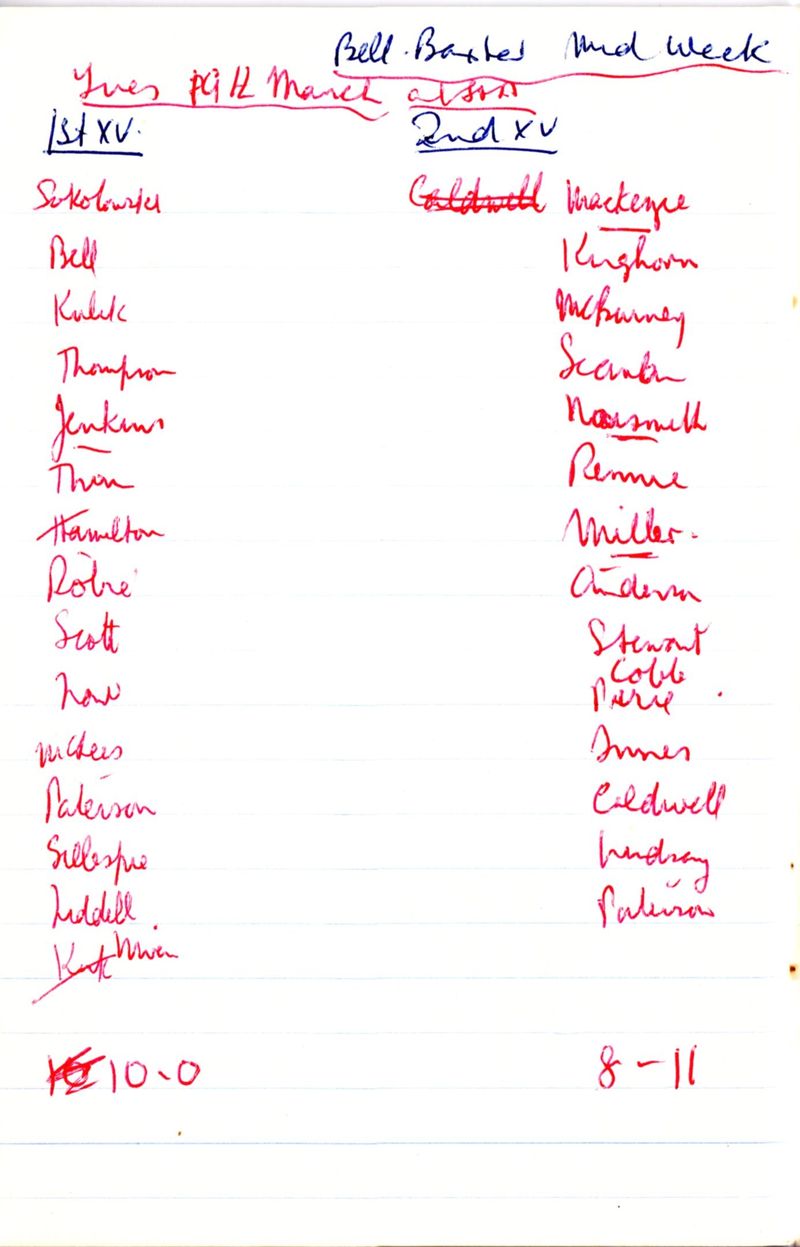 Bell-Baxter Mid Week
Tues 19th March at
1st XV. 2nd XV
Sokolowski Caldwell Mackenzie
Bell Kinghorn
Kulik McBurney
Thompson Scanlan
Jenkins Naesmith
Thom Rennie
Hamilton Miller.
Robie Anderson
Scott Stewart
Low Cobb
Pirie
McLees Innes
Paterson Caldwell
Gillespie Lindsay
Liddell Paterson
Kirk Niven
10.0 8-11